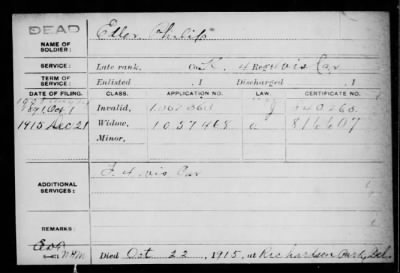 DEAD
NAME OF SOLDIER: Eller Philip
SERVICE: Late rank, Co. L. 4 Reg't Wis Cav
TERM OF SERVICE: Enlisted , 1 Discharged , 1
DATE OF FILING. CLASS. APPLICATION NO. LAW. CERTIFICATE NO.
1891 Oct 1 Invalid,
1915 Dec 21 Widow, 1057468 816607
Minor,
ADDITIONAL SERVICES: F. 4 Wis Cav
REMARKS:
Died Oct 22, 1915, at Richardson Park, Del.